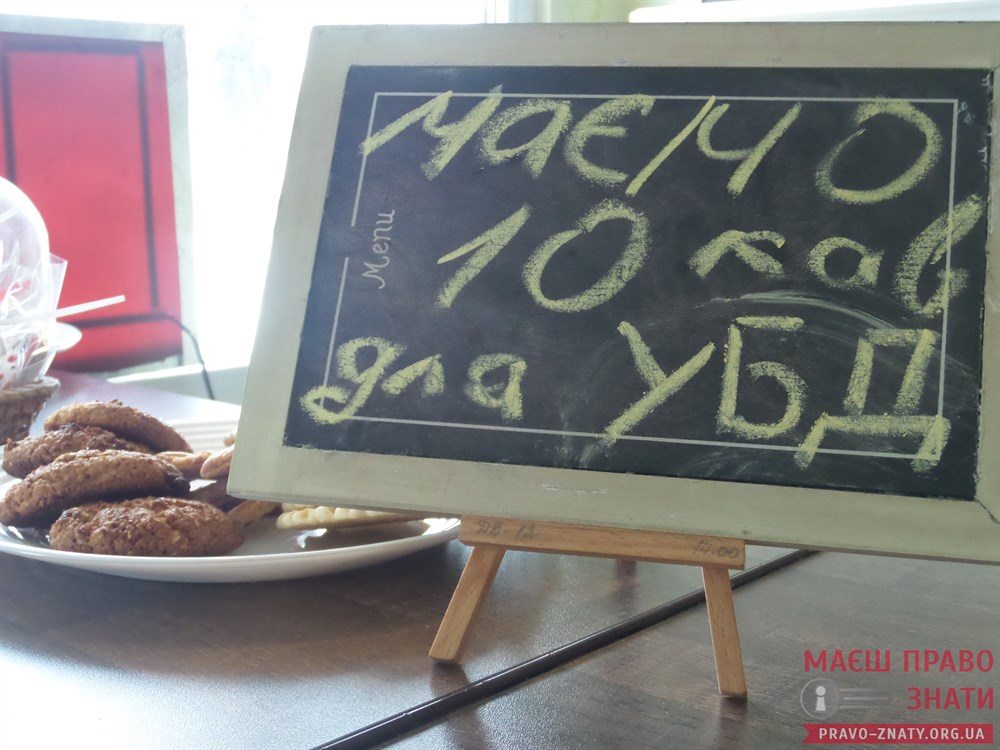 МАЄМО
10 кав
для УБД
Menu
ДВ-12
14.00
МАЄШ ПРАВО
ЗНАТИ
PRAVO-ZNATY.ORG.UA